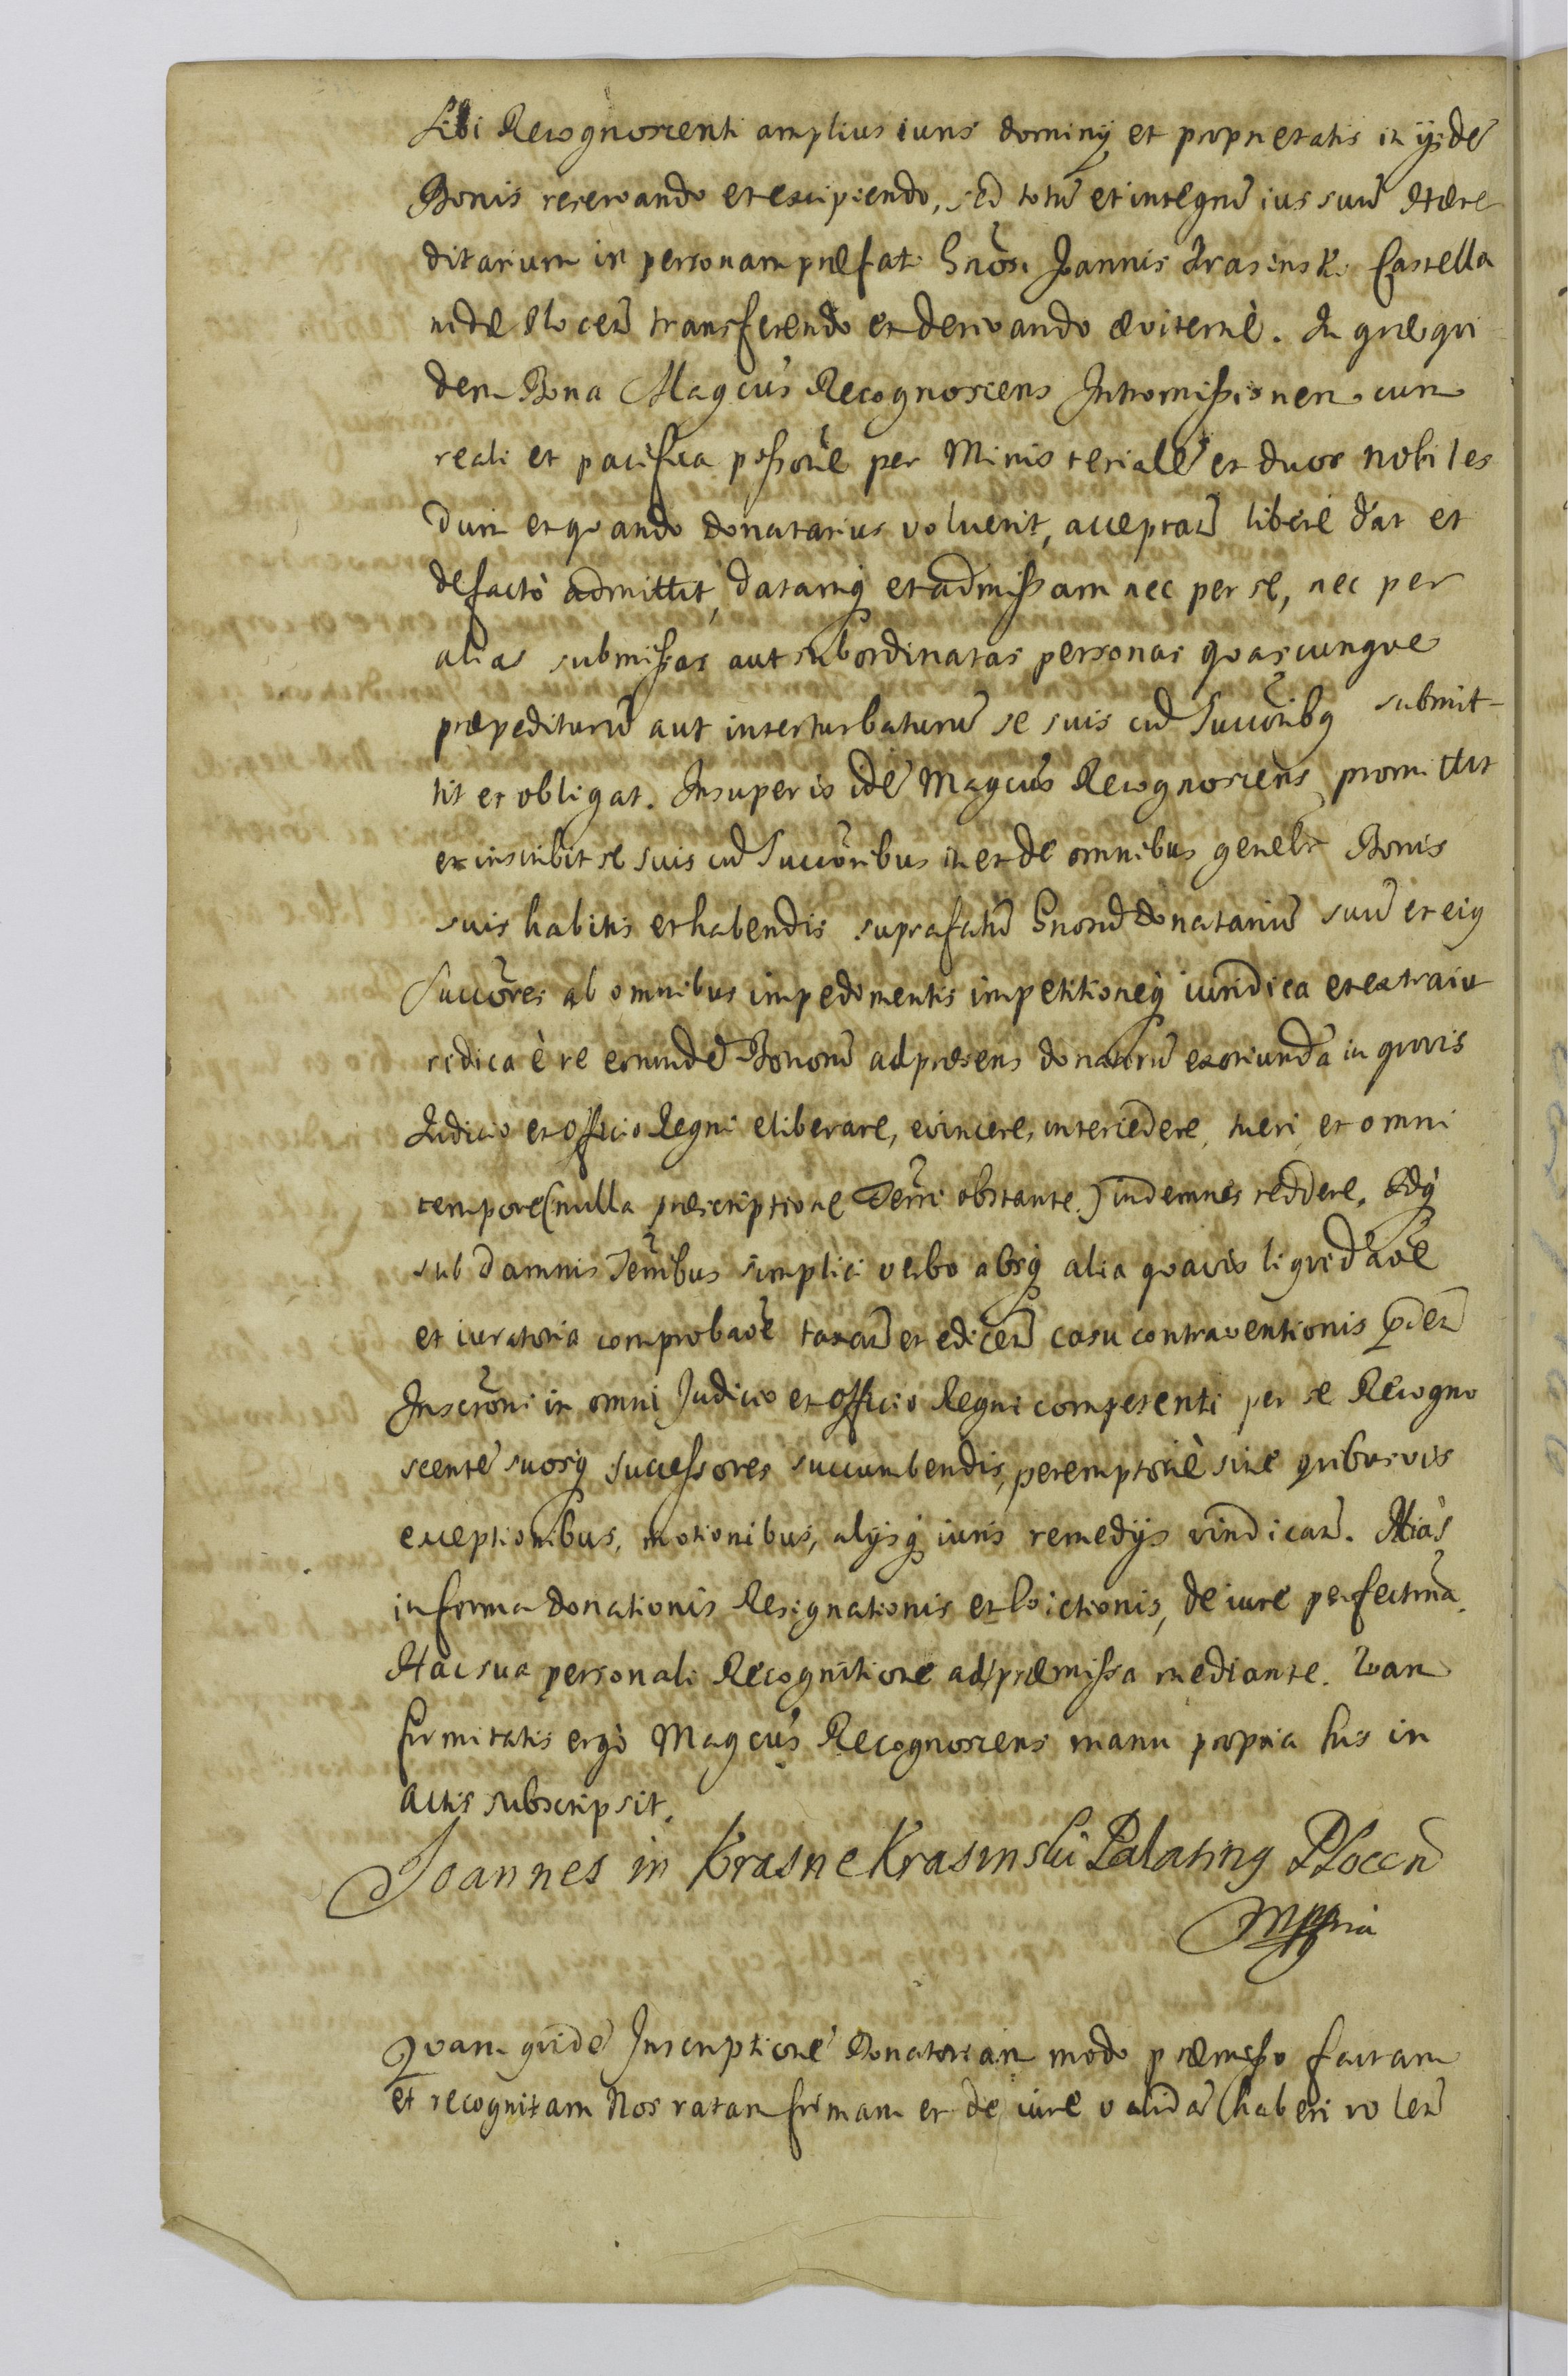 sibi Recognoscenti amplius iuris dominij et proprietatis in ijsdē
Bonis reservando et excipiendo, sed totū et integrū ius suū Hære
ditarium in personam præfati Gnosi Joannis Krasinski Castella
nidæ Plocen̄ transferendo et derivando æviternè. In quæ qui
dem Bona Magcus Recognoscens Intromissionem cum
reali et pacifica possone per Ministerialē et duos nobiles
dum et quando donatarius voluerit, acceptan̄ liberè dat et
defactò admittit, datamq; et admissam nec per se, nec per
alias submissas aut subordinatas personas quascunque
præpediturū aut interturbaturū se suis cū Succōribq submit-
tit et obligat. Insuper is idē Magcus Recognoscens promittit
et inscribit se suis cū Succōribus in et de omnibus genēlr Bonis
suis habitis et habendis suprafatū Gnosū donatariū suū et eiq
Succōres ab omnibus impedimentis impetitioneq; iuridica et extraiu
ridica è re eorundē Bonorū ad præsens donatorū exoriunda in quovis
Judicio et officio Regni eliberare, evincere, intercedere, tueri et omni
tempore (nulla præscriptione Terri obstante.) indemnes reddere. Idq;
sub damnis Terribus simplici verbo absq; alia quavis liquidaōe
et iuratoria comprobaōe taxan̄ et edicen̄ casu contraventionis pden̄
Inscrōni in omni Judicio et officio Regni competenti per se Recogno
scentē suosq; successores succumbendis, peremptoriè sine quibusvis
exceptionibus, motionibus, alijsq; iuris remedijs vindican̄. Aliàs
in forma donationis Resignationis et Evictionis, de iure perfectima.
Hac sua personali Recognitione ad præmissa mediante. Quam
firmitatis ergò Magcus Recognoscens manu propria his in
actis subscripsit.
Joannes in Krasne Krasinski Palatinq Plocen̄
mppria
Quam quidē Inscriptionē Donatoriam modo præmisso factam
et recognitam Nos ratam firmam et de iure validā haberi volen̄